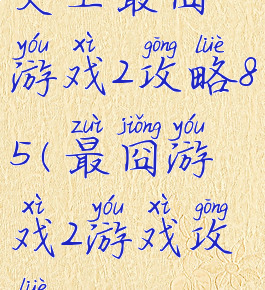 史上最囧
yóu xì gōng lüè
游戏2攻略8
zuì jiǒng yóu
5(最囧游
xì yóu xì gōng
戏2游戏攻
lüè